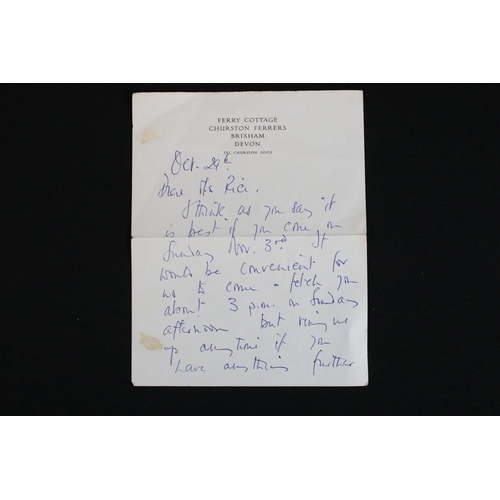 FERRY COTTAGE
CHURSTON FERRERS
BRIXHAM
DEVON
TEL. CHURSTON
Oct. 29th
Dear Mrs Rice.
I think as you say it
is best if you come on
Sunday Nov. 3rd. It
would be convenient for
us to come & fetch you
about 3 p.m. on Sunday
afternoon but ring us
up anytime if you
have anything further